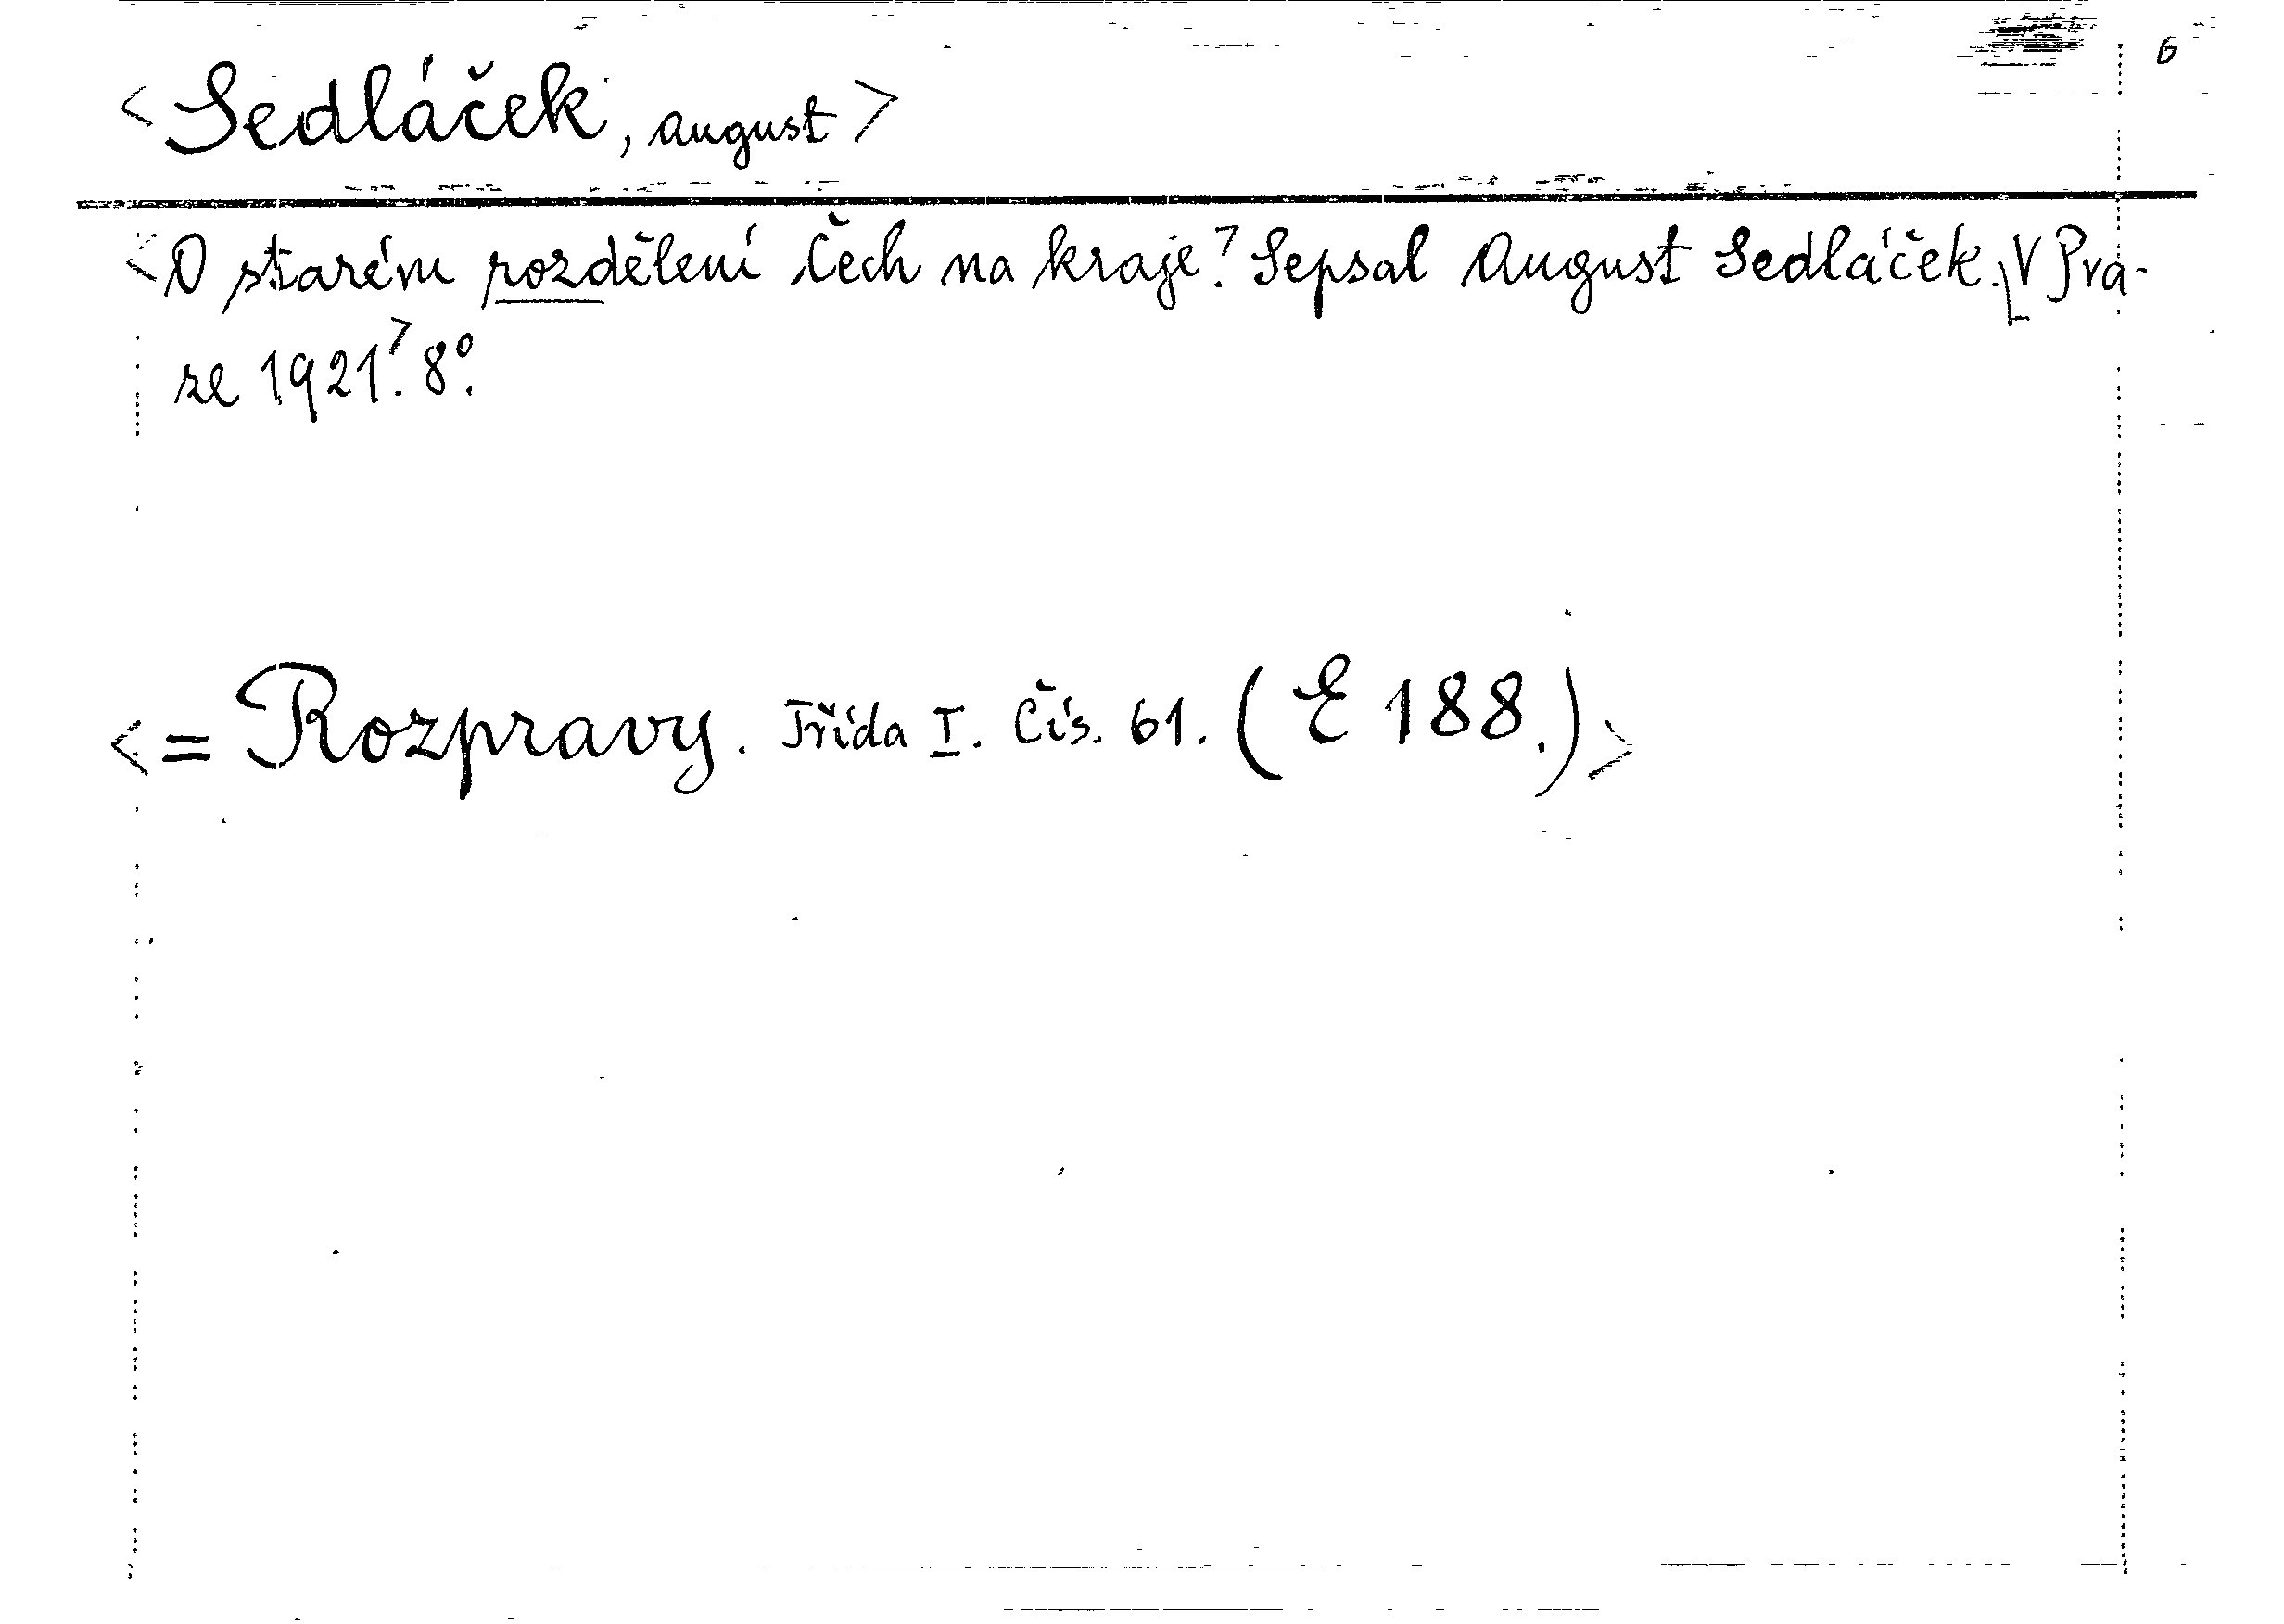 6
<Sedláček, August>
<O starém rozdělení Čech na kraje.> Sepsal August Sedláček. V Pra-
ze 1921.> 8°.
<= Rozpravy. Třída I. Čís. 61. (E 188.)>